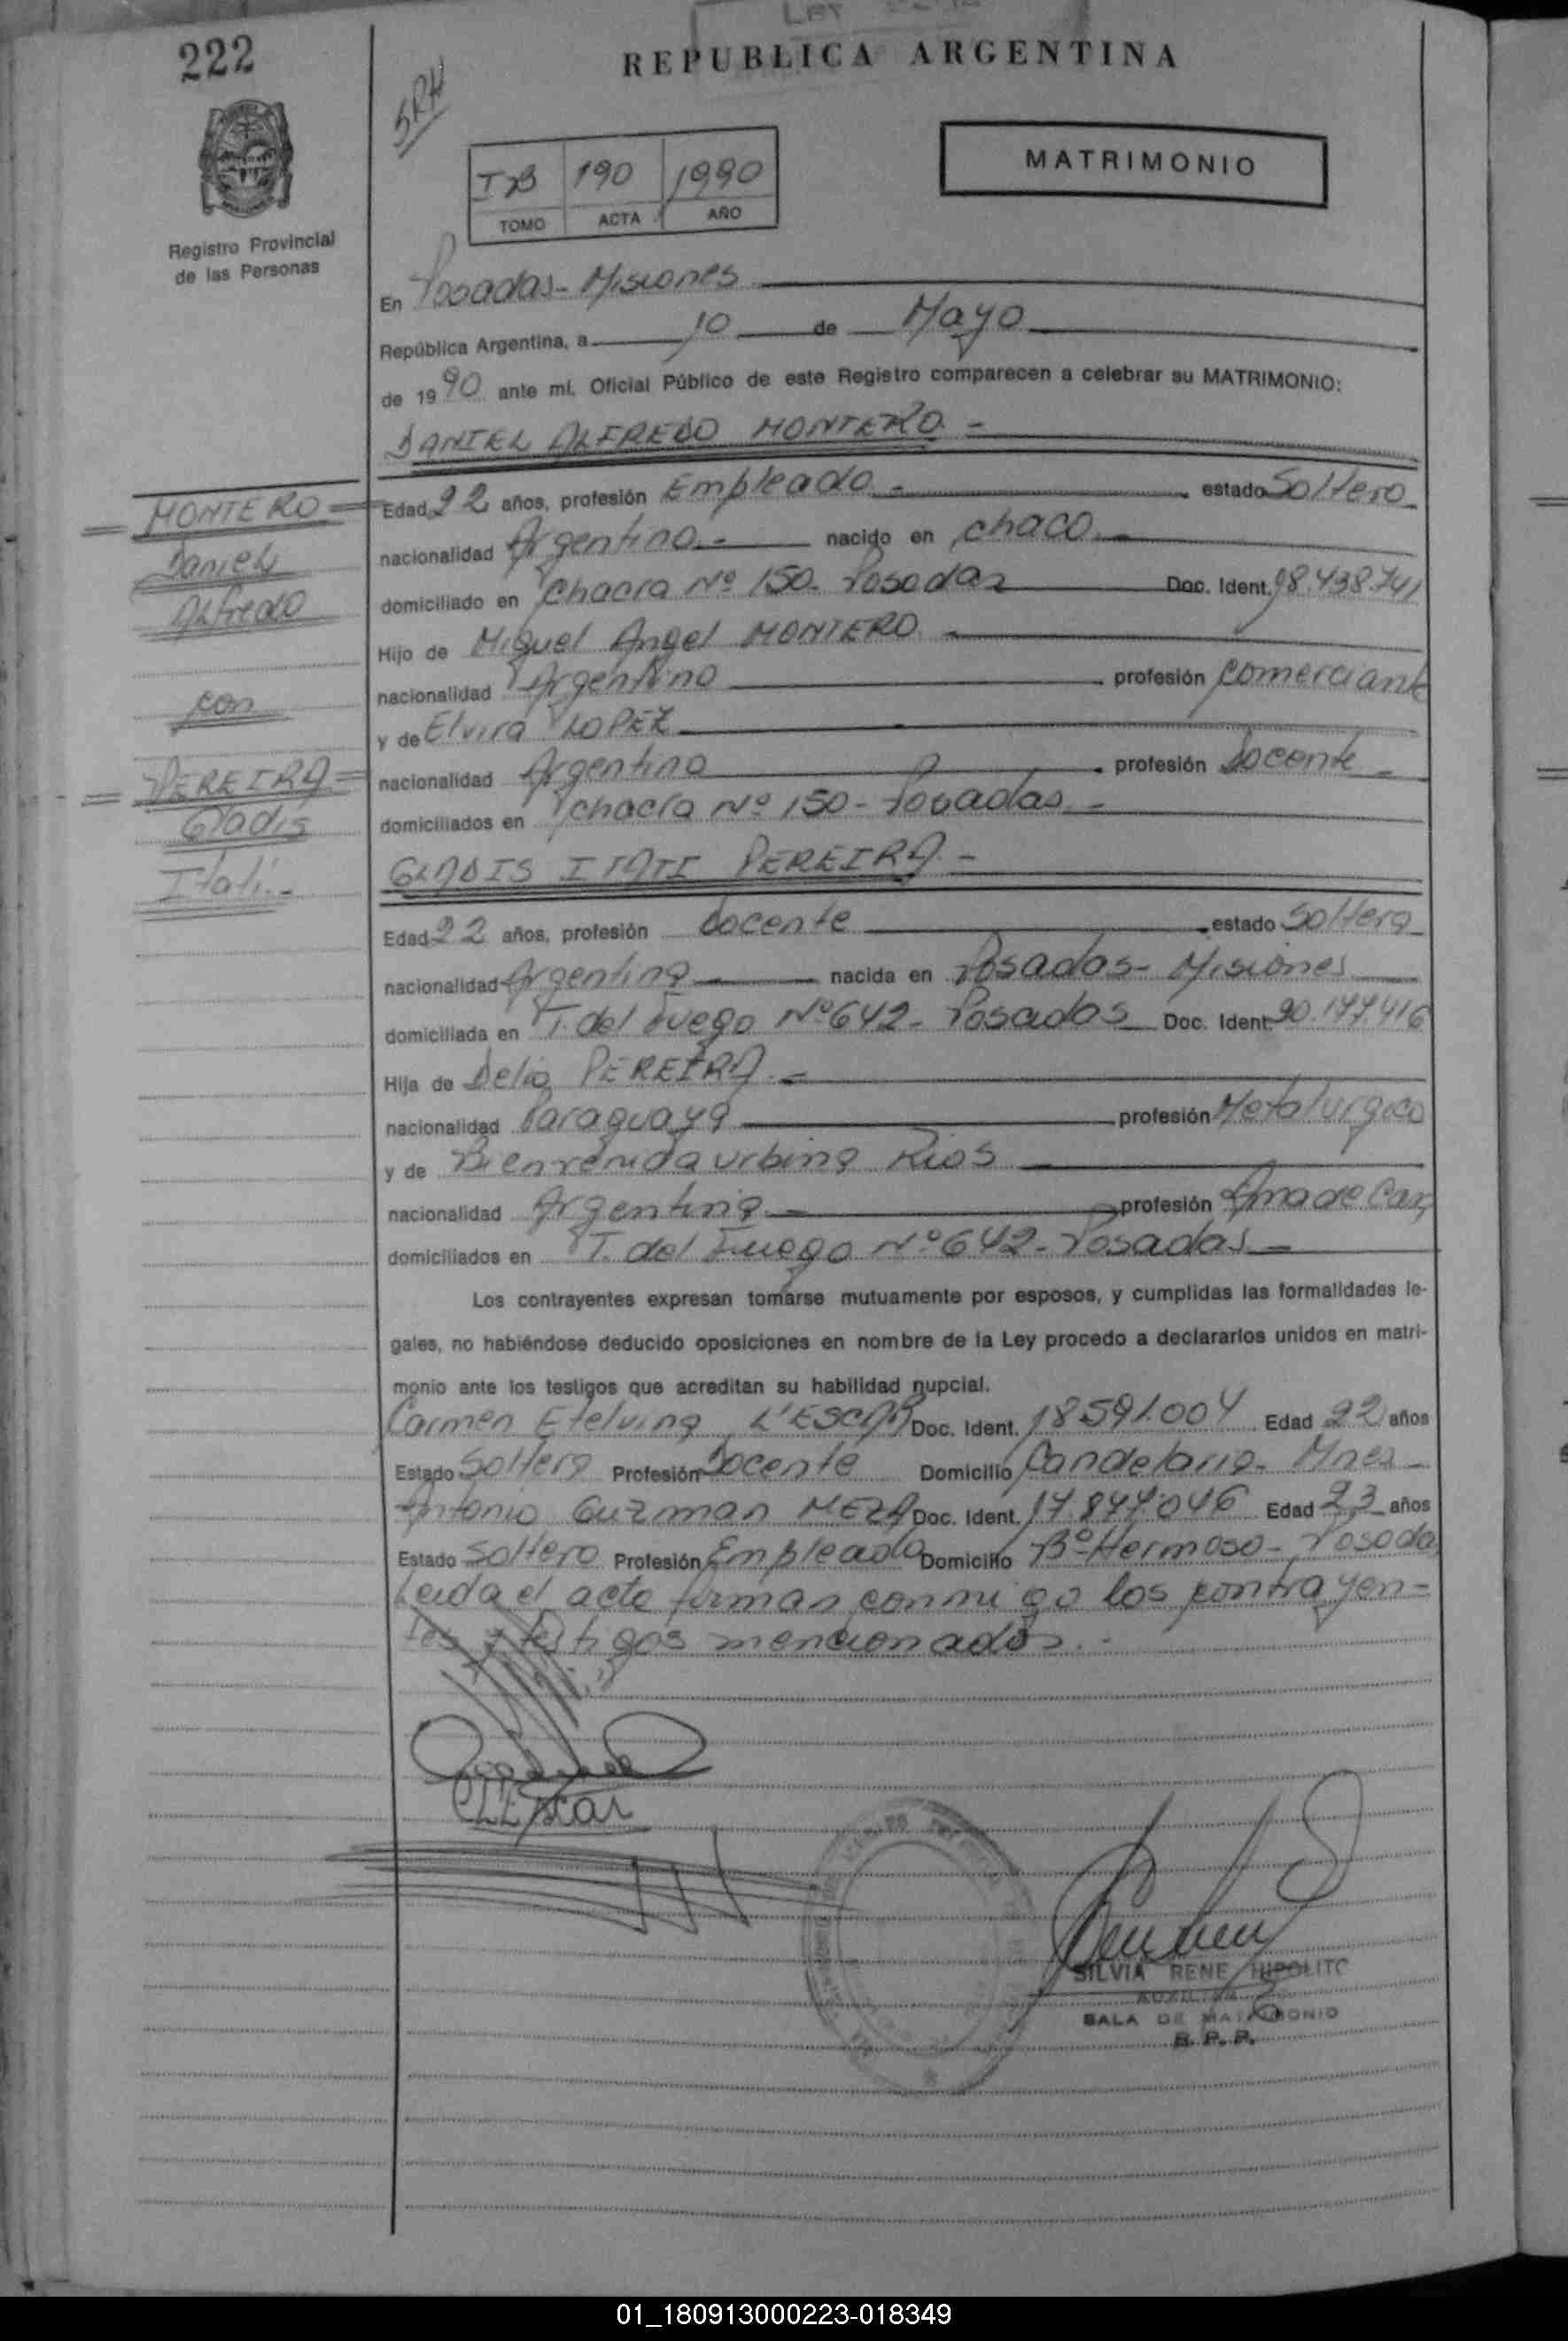 LEY
222
REPUBLICA ARGENTINA
SRH
MATRIMONIO
190 1990
TOMO ACTA AÑO
Registro Provincial
de las Personas
En Posadas - Misiones
República Argentina, a 10 de Mayo
de 1990 ante mí, Oficial Público de este Registro comparecen a celebrar su MATRIMONIO:
DANIEL ALFREDO MONTERO. -
MONTERO =
Daniel
Alfredo
con
PEREIRA =
Gladis
Itatí. -
Edad 22 años, profesión Empleado. - estado Soltero
nacionalidad Argentino. - nacido en Chaco. -
domiciliado en Chacra Nº 150. Posadas Doc. Ident. 18.438.741
Hijo de Miguel Angel MONTERO. -
nacionalidad Argentino profesión Comerciante
y de Elvira LOPEZ
nacionalidad Argentina profesión Docente -
domiciliados en Chacra Nº 150 - Posadas. -
GLADIS ITATI PEREIRA. -
Edad 22 años, profesión Docente estado Soltera
nacionalidad Argentina nacida en Posadas - Misiones
domiciliada en T. del Fuego Nº 642 - Posadas Doc. Ident. 20.177.416
Hija de Delio PEREIRA. -
nacionalidad Paraguaya profesión Metalurgico
y de Bienvenida Urbina Rios
nacionalidad Argentina. - profesión Ama de Casa
domiciliados en T. del Fuego Nº 642 - Posadas. -
Los contrayentes expresan tomarse mutuamente por esposos, y cumplidas las formalidades le-
gales, no habiéndose deducido oposiciones en nombre de la Ley procedo a declararlos unidos en matri-
monio ante los testigos que acreditan su habilidad nupcial.
Carmen Etelvina L'ESCAR Doc. Ident. 18.591.004 Edad 22 años
Estado Soltera Profesión Docente Domicilio Candelaria - Mnes -
Antonio Guzman MEZA Doc. Ident. 17.847.046 Edad 23 años
Estado Soltero Profesión Empleado Domicilio Bº Hermoso - Posadas
Leida el acta firman conmigo los contrayen-
tes y testigos mencionados. -
CLEscar
SILVIA RENE HIPOLITO
AUXILIAR
SALA DE MATRIMONIO
R. P. P.
01_180913000223-018349